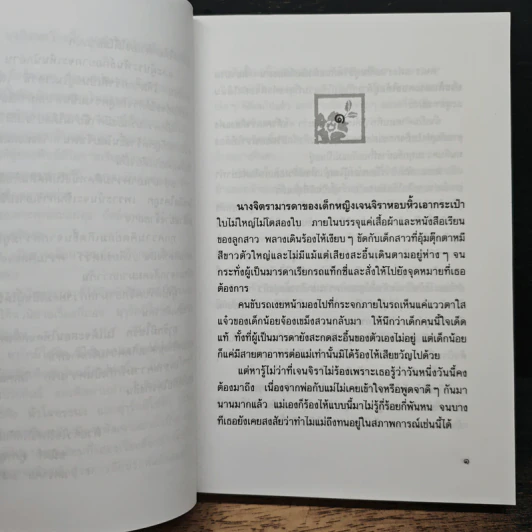 ๑
นางจิตรามารดาของเด็กหญิงเจนจิราหอบหิ้วเอากระเป๋า
ใบไม่ใหญ่ไม่โตสองใบ ภายในบรรจุแค่เสื้อผ้าและหนังสือเรียน
ของลูกสาว พลางเดินร้องไห้เงียบๆ ขัดกับเด็กสาวที่อุ้มตุ๊กตาหมี
สีขาวตัวใหญ่และไม่มีแม้แต่เสียงสะอื้นเดินตามอยู่ห่างๆ จน
กระทั่งผู้เป็นมารดาเรียกรถแท็กซี่และสั่งให้ไปยังจุดหมายที่เธอ
ต้องการ
คนขับรถเงยหน้ามองไปที่กระจกภายในรถเห็นแค่แววตาใส
แจ๋วของเด็กน้อยจ้องเขม็งสวนกลับมา ให้นึกว่าเด็กคนนี้ใจเด็ด
แท้ ทั้งที่ผู้เป็นมารดายังสะกดสะอื้นของตัวเองไม่อยู่ แต่เด็กน้อย
ก็แค่มีสายตาอาทรต่อแม่เท่านั้นมิได้ร้องไห้เสียขวัญไปด้วย
แต่หารู้ไม่ว่าที่เจนจิราไม่ร้องเพราะเธอรู้ว่าวันหนึ่งวันนี้คง
ต้องมาถึง เนื่องจากพ่อกับแม่ไม่เคยเข้าใจหรือพูดจาดีๆ กันมา
นานมากแล้ว แม่เองก็ร้องไห้แบบนี้มาไม่รู้กี่ร้อยกี่พันหน จนบาง
ทีเธอยังเคยสงสัยว่าทำไมแม่ถึงทนอยู่ในสภาพการณ์เช่นนี้ได้
๑